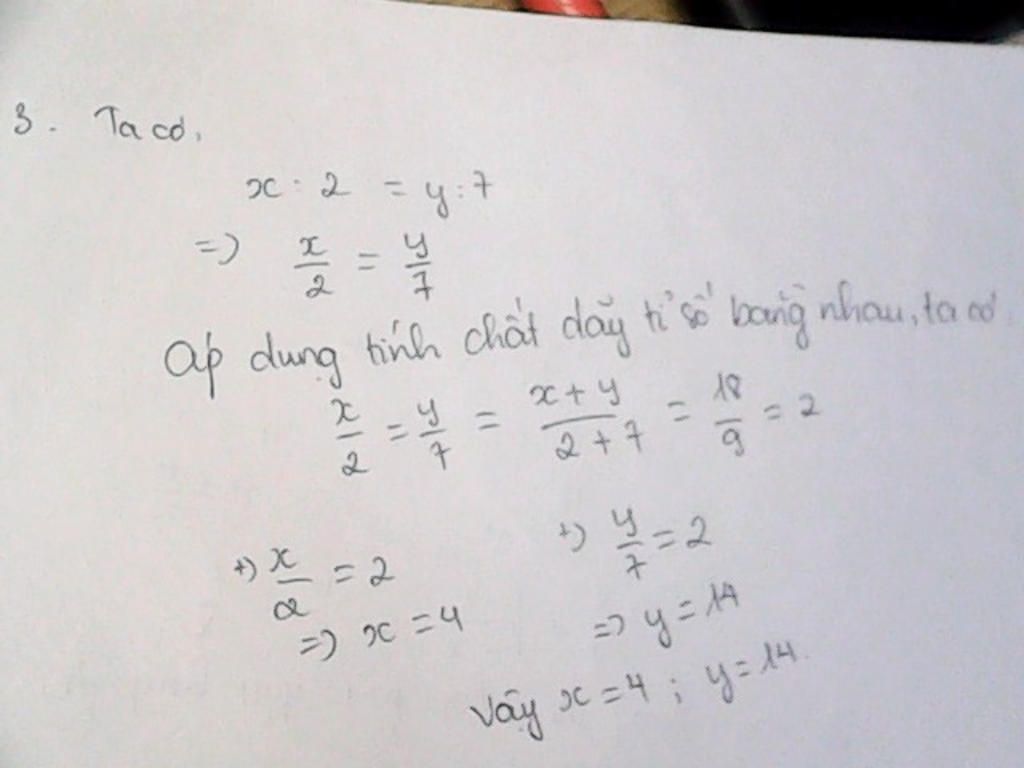 3. Ta có,
x : 2 = y : 7
=> x/2 = y/7
Áp dụng tính chất dãy tỉ số bằng nhau, ta có
x/2 = y/7 = x+y/2+7 = 18/9 = 2
+) x/2 = 2 +) y/7 = 2
=> x = 4 => y = 14
Vậy x = 4 ; y = 14.